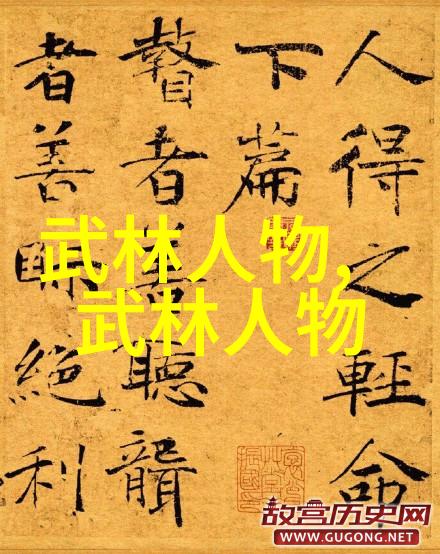 人得之輕命
下篇
瞽者善聽聾
者善眎絕利
武林人物,
武林人物
故宫历史网
WWW.GUGONG.NET